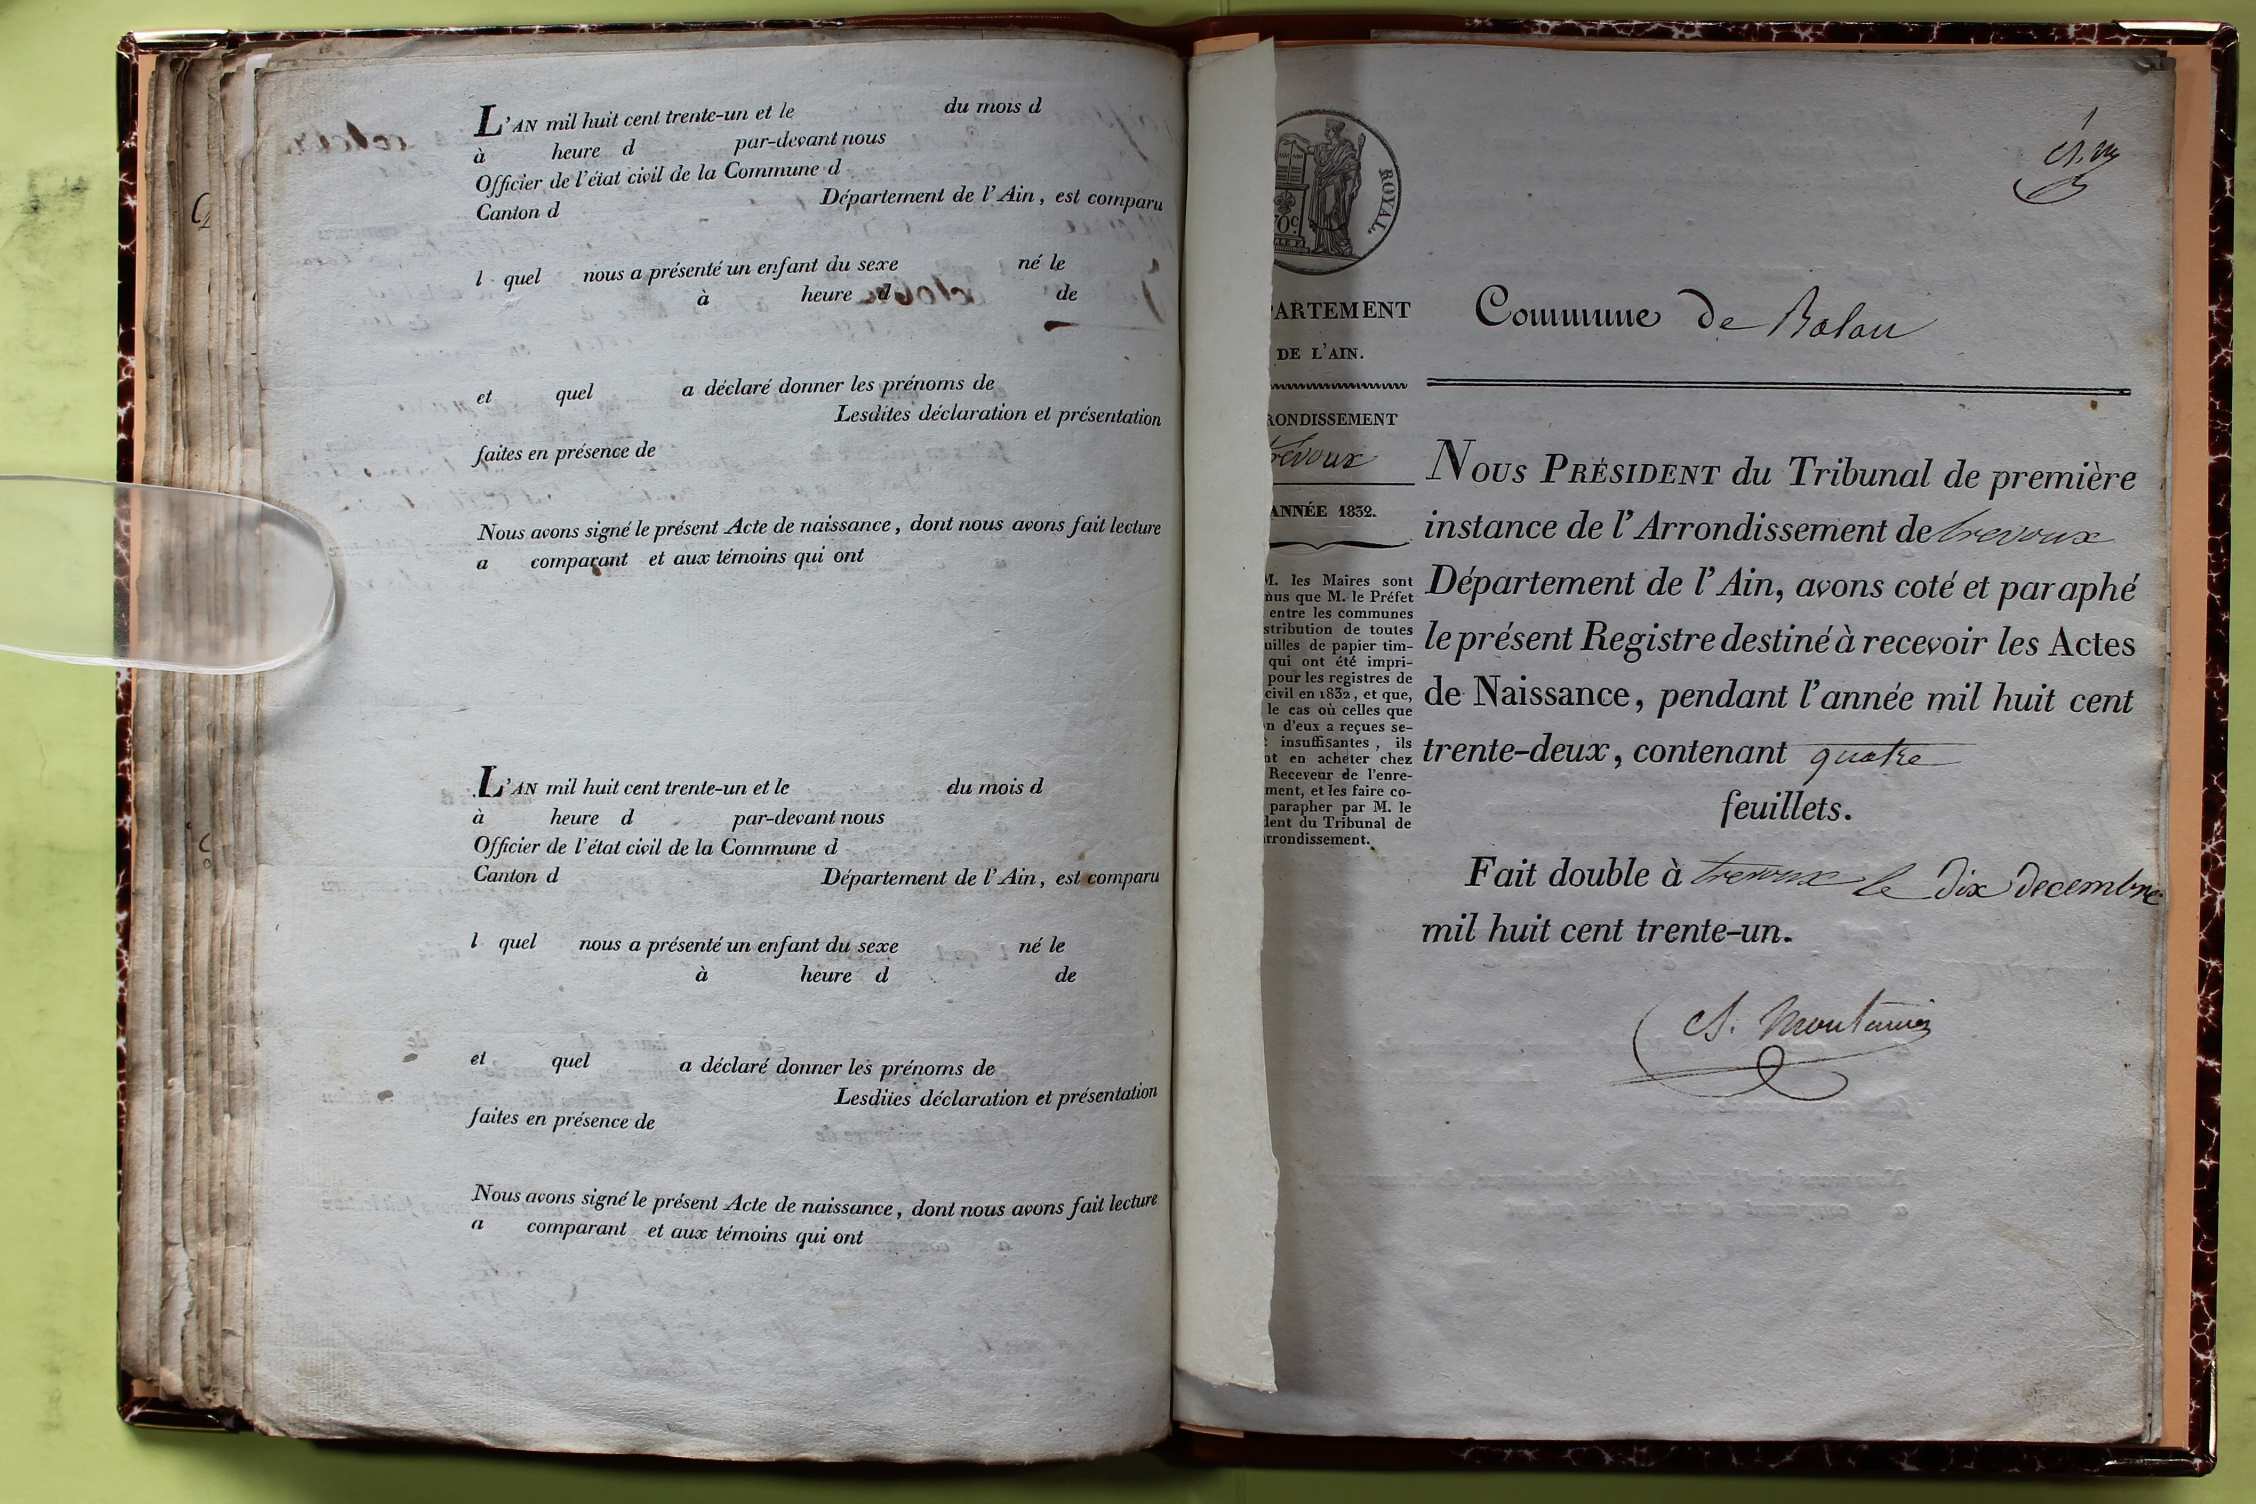 L'AN mil huit cent trente-un et le du mois d
à heure d par-devant nous
Officier de l'état civil de la Commune d
Canton d Département de l'Ain, est comparu
l quel nous a présenté un enfant du sexe né le
à heure d de
et quel a déclaré donner les prénoms de
Lesdites déclaration et présentation
faites en présence de
Nous avons signé le présent Acte de naissance, dont nous avons fait lecture
a comparant et aux témoins qui ont
L'AN mil huit cent trente-un et le du mois d
à heure d par-devant nous
Officier de l'état civil de la Commune d
Canton d Département de l'Ain, est comparu
l quel nous a présenté un enfant du sexe né le
à heure d de
et quel a déclaré donner les prénoms de
Lesdites déclaration et présentation
faites en présence de
Nous avons signé le présent Acte de naissance, dont nous avons fait lecture
a comparant et aux témoins qui ont
1
ROYAL
70c
PARTEMENT
DE L'AIN.
RONDISSEMENT
trévoux
ANNÉE 1832.
M. les Maires sont
nus que M. le Préfet
entre les communes
stribution de toutes
uilles de papier tim-
qui ont été impri-
pour les registres de
civil en 1832, et que,
le cas où celles que
n d'eux a reçues se-
insuffisantes, ils
nt en acheter chez
Receveur de l'enre-
ment, et les faire co-
parapher par M. le
dent du Tribunal de
rrondissement.
Commune de Balan
NOUS PRÉSIDENT du Tribunal de première
instance de l'Arrondissement de trevoux
Département de l'Ain, avons coté et paraphé
le présent Registre destiné à recevoir les Actes
de Naissance, pendant l'année mil huit cent
trente-deux, contenant quatre
feuillets.
Fait double à trevoux le dix decembre
mil huit cent trente-un.